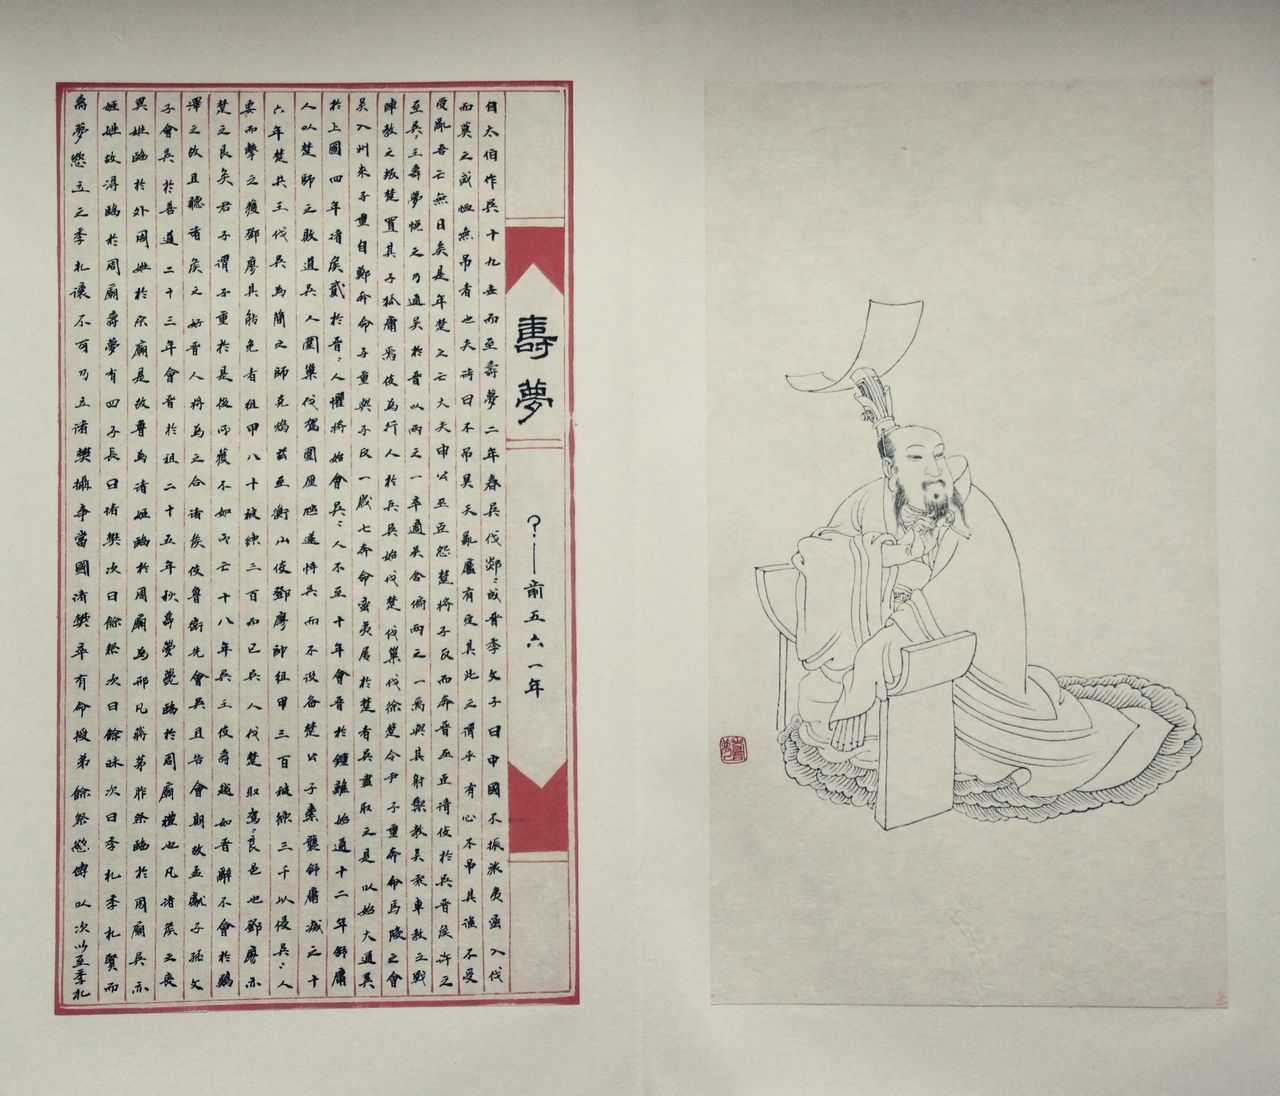 壽夢
?——前五六一年
自太伯作吳十九世而至壽夢二年春吳伐郯〻成晉季文子曰中國不振旅夷蠻入伐
而莫之或恤無吊者也夫詩曰不吊昊天亂靡有定其此之謂乎有心不吊其誰不受
受亂吾亡無日矣是年楚之亡大夫申公巫臣怨楚將子反而奔晉巫臣請使於吳晉侯許之
至吳〻王壽夢悅之乃通吳於晉以兩之一卒適吳舍偏兩之一焉與其射與教吳乘車教之戰
陣教之叛楚置其子狐庸焉使為行人於吳吳始伐楚伐巢伐徐楚令尹子重奔命馬陵之會
吳入州來子重自鄭奔命子重與子反一歲七奔命蠻夷屬於楚者吳盡取之是以始大通吳
於上國四年諸矦貳於晉〻人懼將始會吳〻人不至十年會晉於鍾離始通十二年舒庸
人以楚師之敗道吳人圍巢伐駕圍厘虺遂恃吳而不設备楚公子橐襲舒庸滅之十
六年楚共王伐吳為簡之師克鳩茲至衡山使鄧廖帥組甲三百被練三千以侵吳〻人
要而擊之獲鄧廖其能免者組甲八十被練三百而已吳人伐楚取駕〻良邑也鄧廖亦
楚之良矣君子謂子重於是役所獲不如所亡十八年吳王使壽越如晉辭不會於鷄
澤之故且聽诸矣之好晉人将為之合诸矣使魯衛先會吳且告會期故孟獻子孫文
子會吳於善道二十三年會晉於祖二十五年秋壽夢薨臨於周廟禮也凡诸矦之喪
異姓臨於外同姓於宗廟是故魯為诸姬臨於周廟為邢凡蔣茅胙祭臨於周廟吳亦
姬姓故得臨於周廟壽夢有四子長曰诸樊次曰餘祭次曰餘昧次曰季札季札賢而
壽夢慾立之季札讓不可乃立诸樊攝事當國诸樊卒有命授弟餘祭慾傳以次以至季札